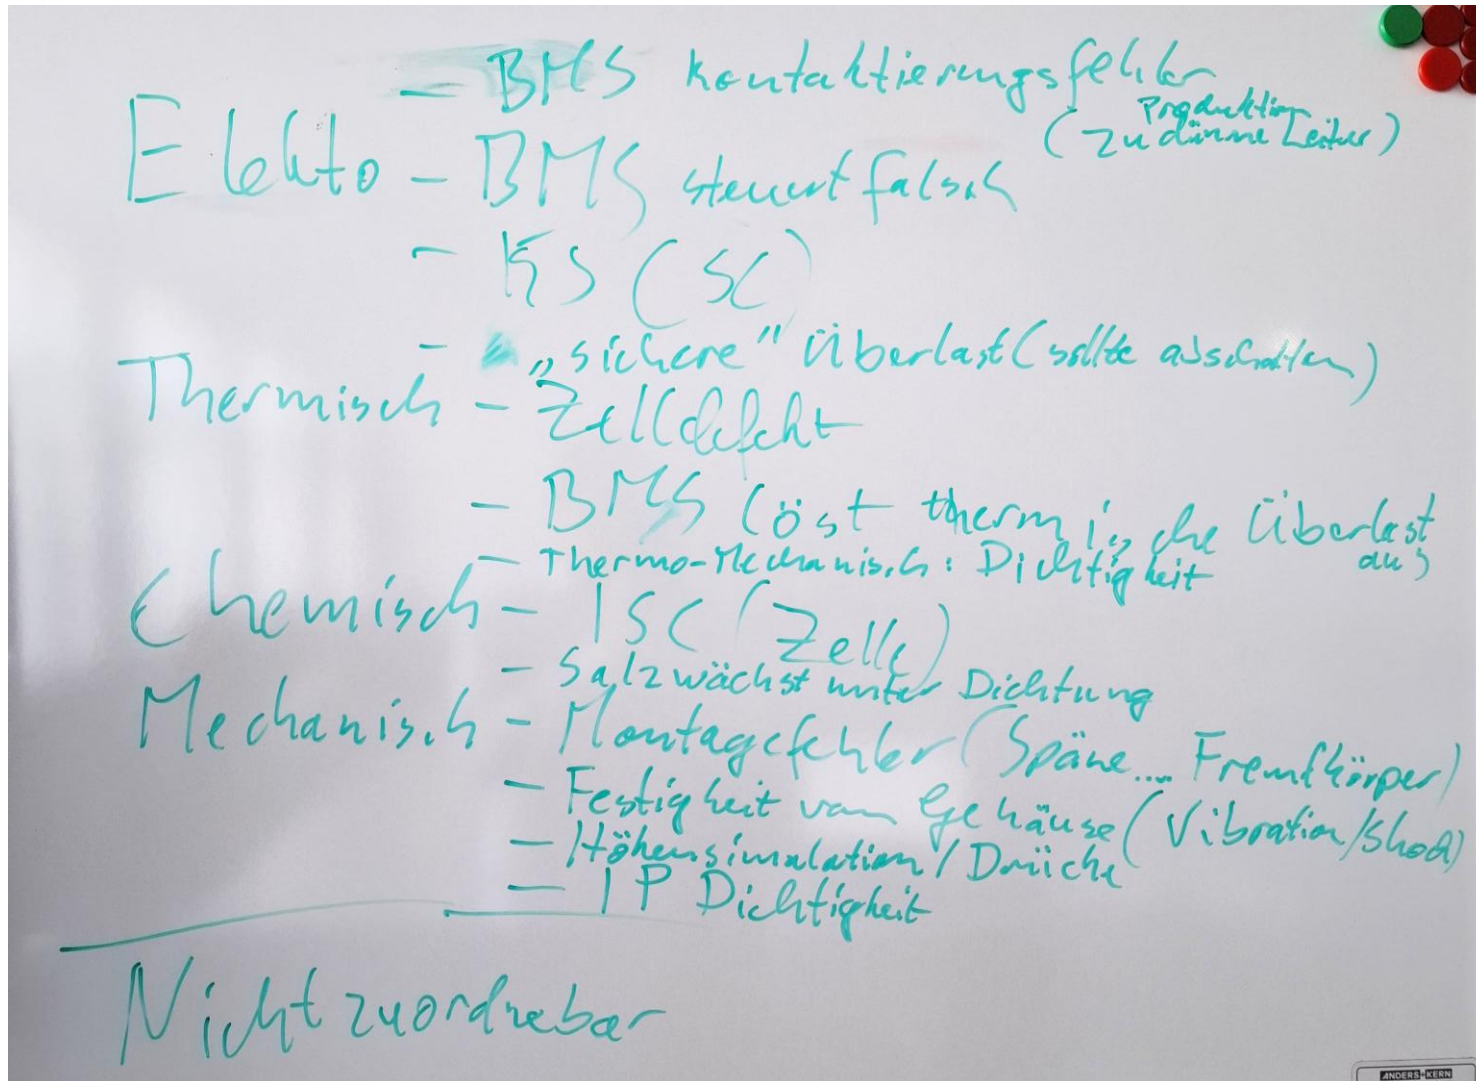 - BMS Kontaktierungsfehler
Produktion
(zu dünne Leiter)
Elekto - BMS steuert falsch
- KS (SC)
- „sichere" Überlast (sollte abschalten)
Thermisch - Zelldefekt
- BMS löst thermische Überlast
aus
- Thermo-Mechanisch: Dichtigkeit
Chemisch - ISC (Zelle)
- Salz wächst unter Dichtung
Mechanisch - Montagefehler (Späne.... Fremdkörper)
- Festigkeit vom Gehäuse (Vibration/Shock)
- Höhensimulation/Drücke
- IP Dichtigkeit
Nicht zuordnebar
ANDERS+KERN